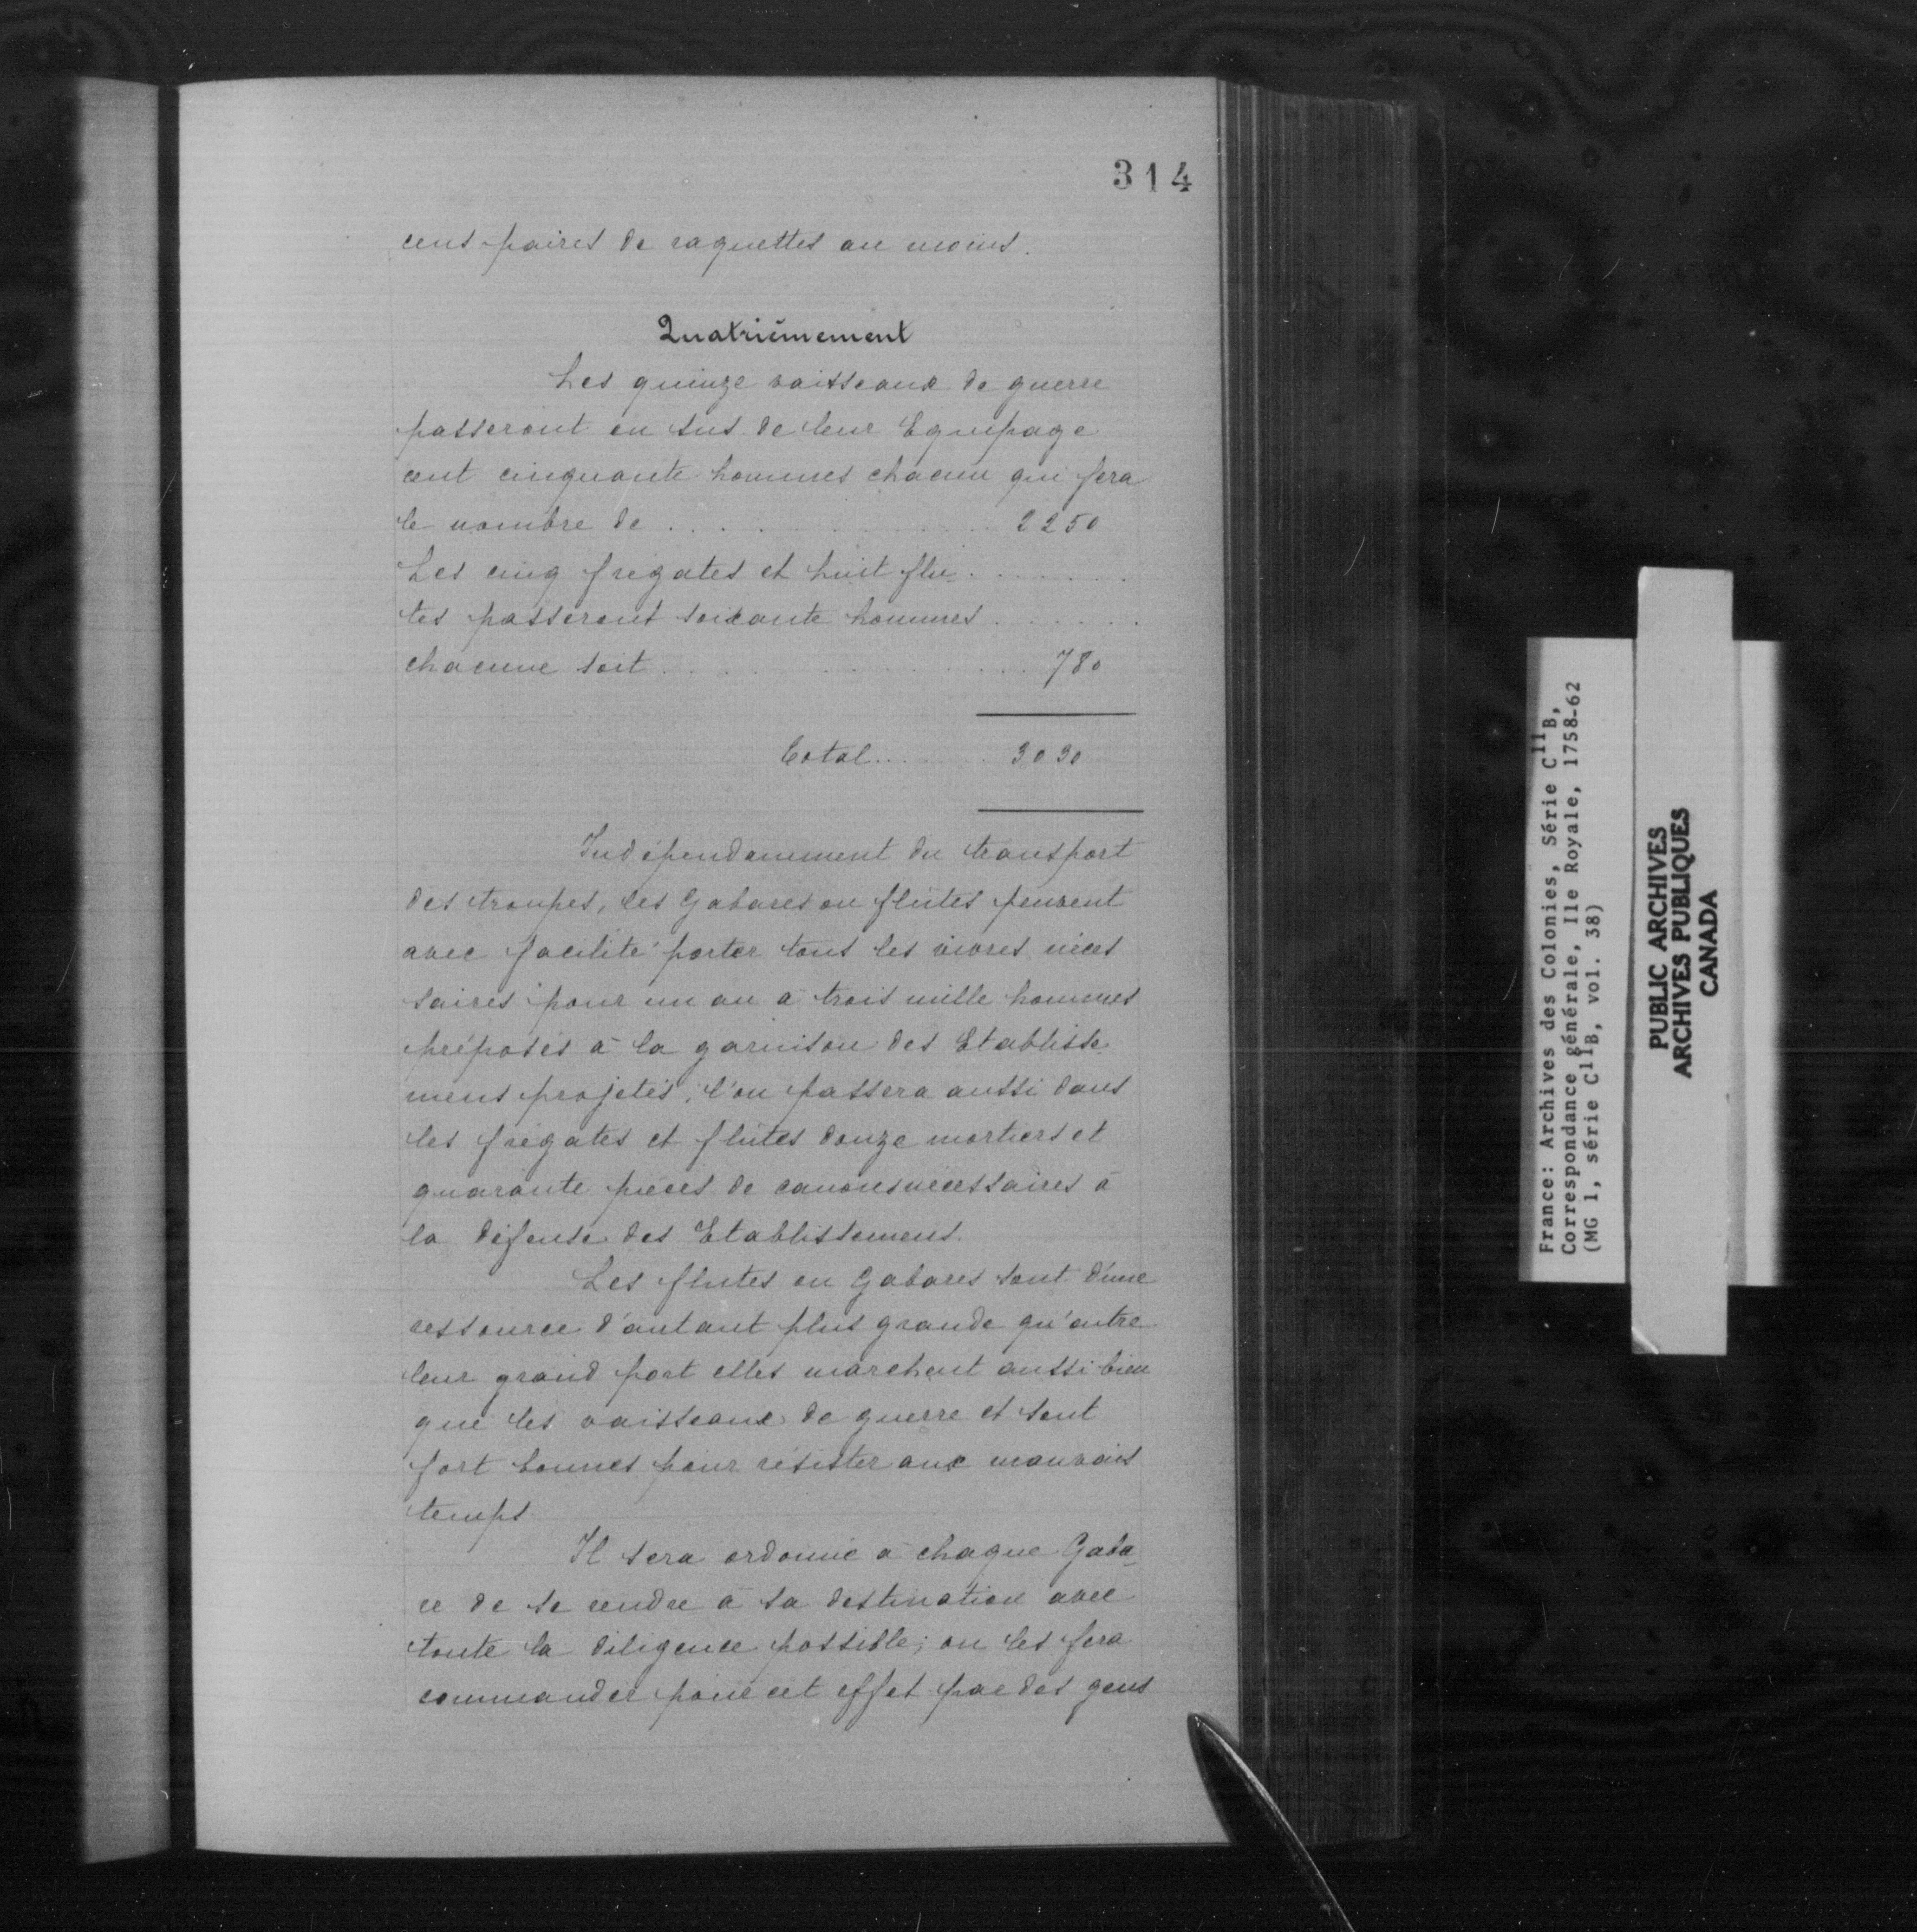 314
cens paires de raquettes au moins.
Quatrièmement
Les quinze vaisseaux de guerre
passeront en sus de leur Equipage
cent cinquante hommes chacun qui fera
le nombre de . . . . . . . . . . 2250
Les cinq frégates et huit flu- . . . . . . .
tes passeront soixante hommes . . . . . .
chacune soit . . . . . . . . . . 780
Total . . . . . 3030
Indépendamment du transport
des troupes, les Gabares ou flûtes peuvent
avec facilité porter tous les vivres néces
saires pour un an à trois mille hommes
préposés à la garnison des Etablisse-
mens projetés, l'on passera aussi dans
les frégates et flûtes douze mortiers et
quarante pièces de canons nécessaires à
la défense des Etablissemens.
Les flutes ou Gabares sont d'une
ressource d'autant plus grande qu'outre
leur grand port elles marchent aussi bien
que les vaisseaux de guerre et sont
fort bonnes pour résister aux mauvais
temps
Il sera ordonné à chaque Gaba-
re de se rendre à sa destination avec
toute la diligence possible; on les fera
commander pour cet effet par des gens
France: Archives des Colonies, Série C11B,
Correspondance générale, Ile Royale, 1758-62
(MG 1, série C11B, vol. 38)
PUBLIC ARCHIVES
ARCHIVES PUBLIQUES
CANADA